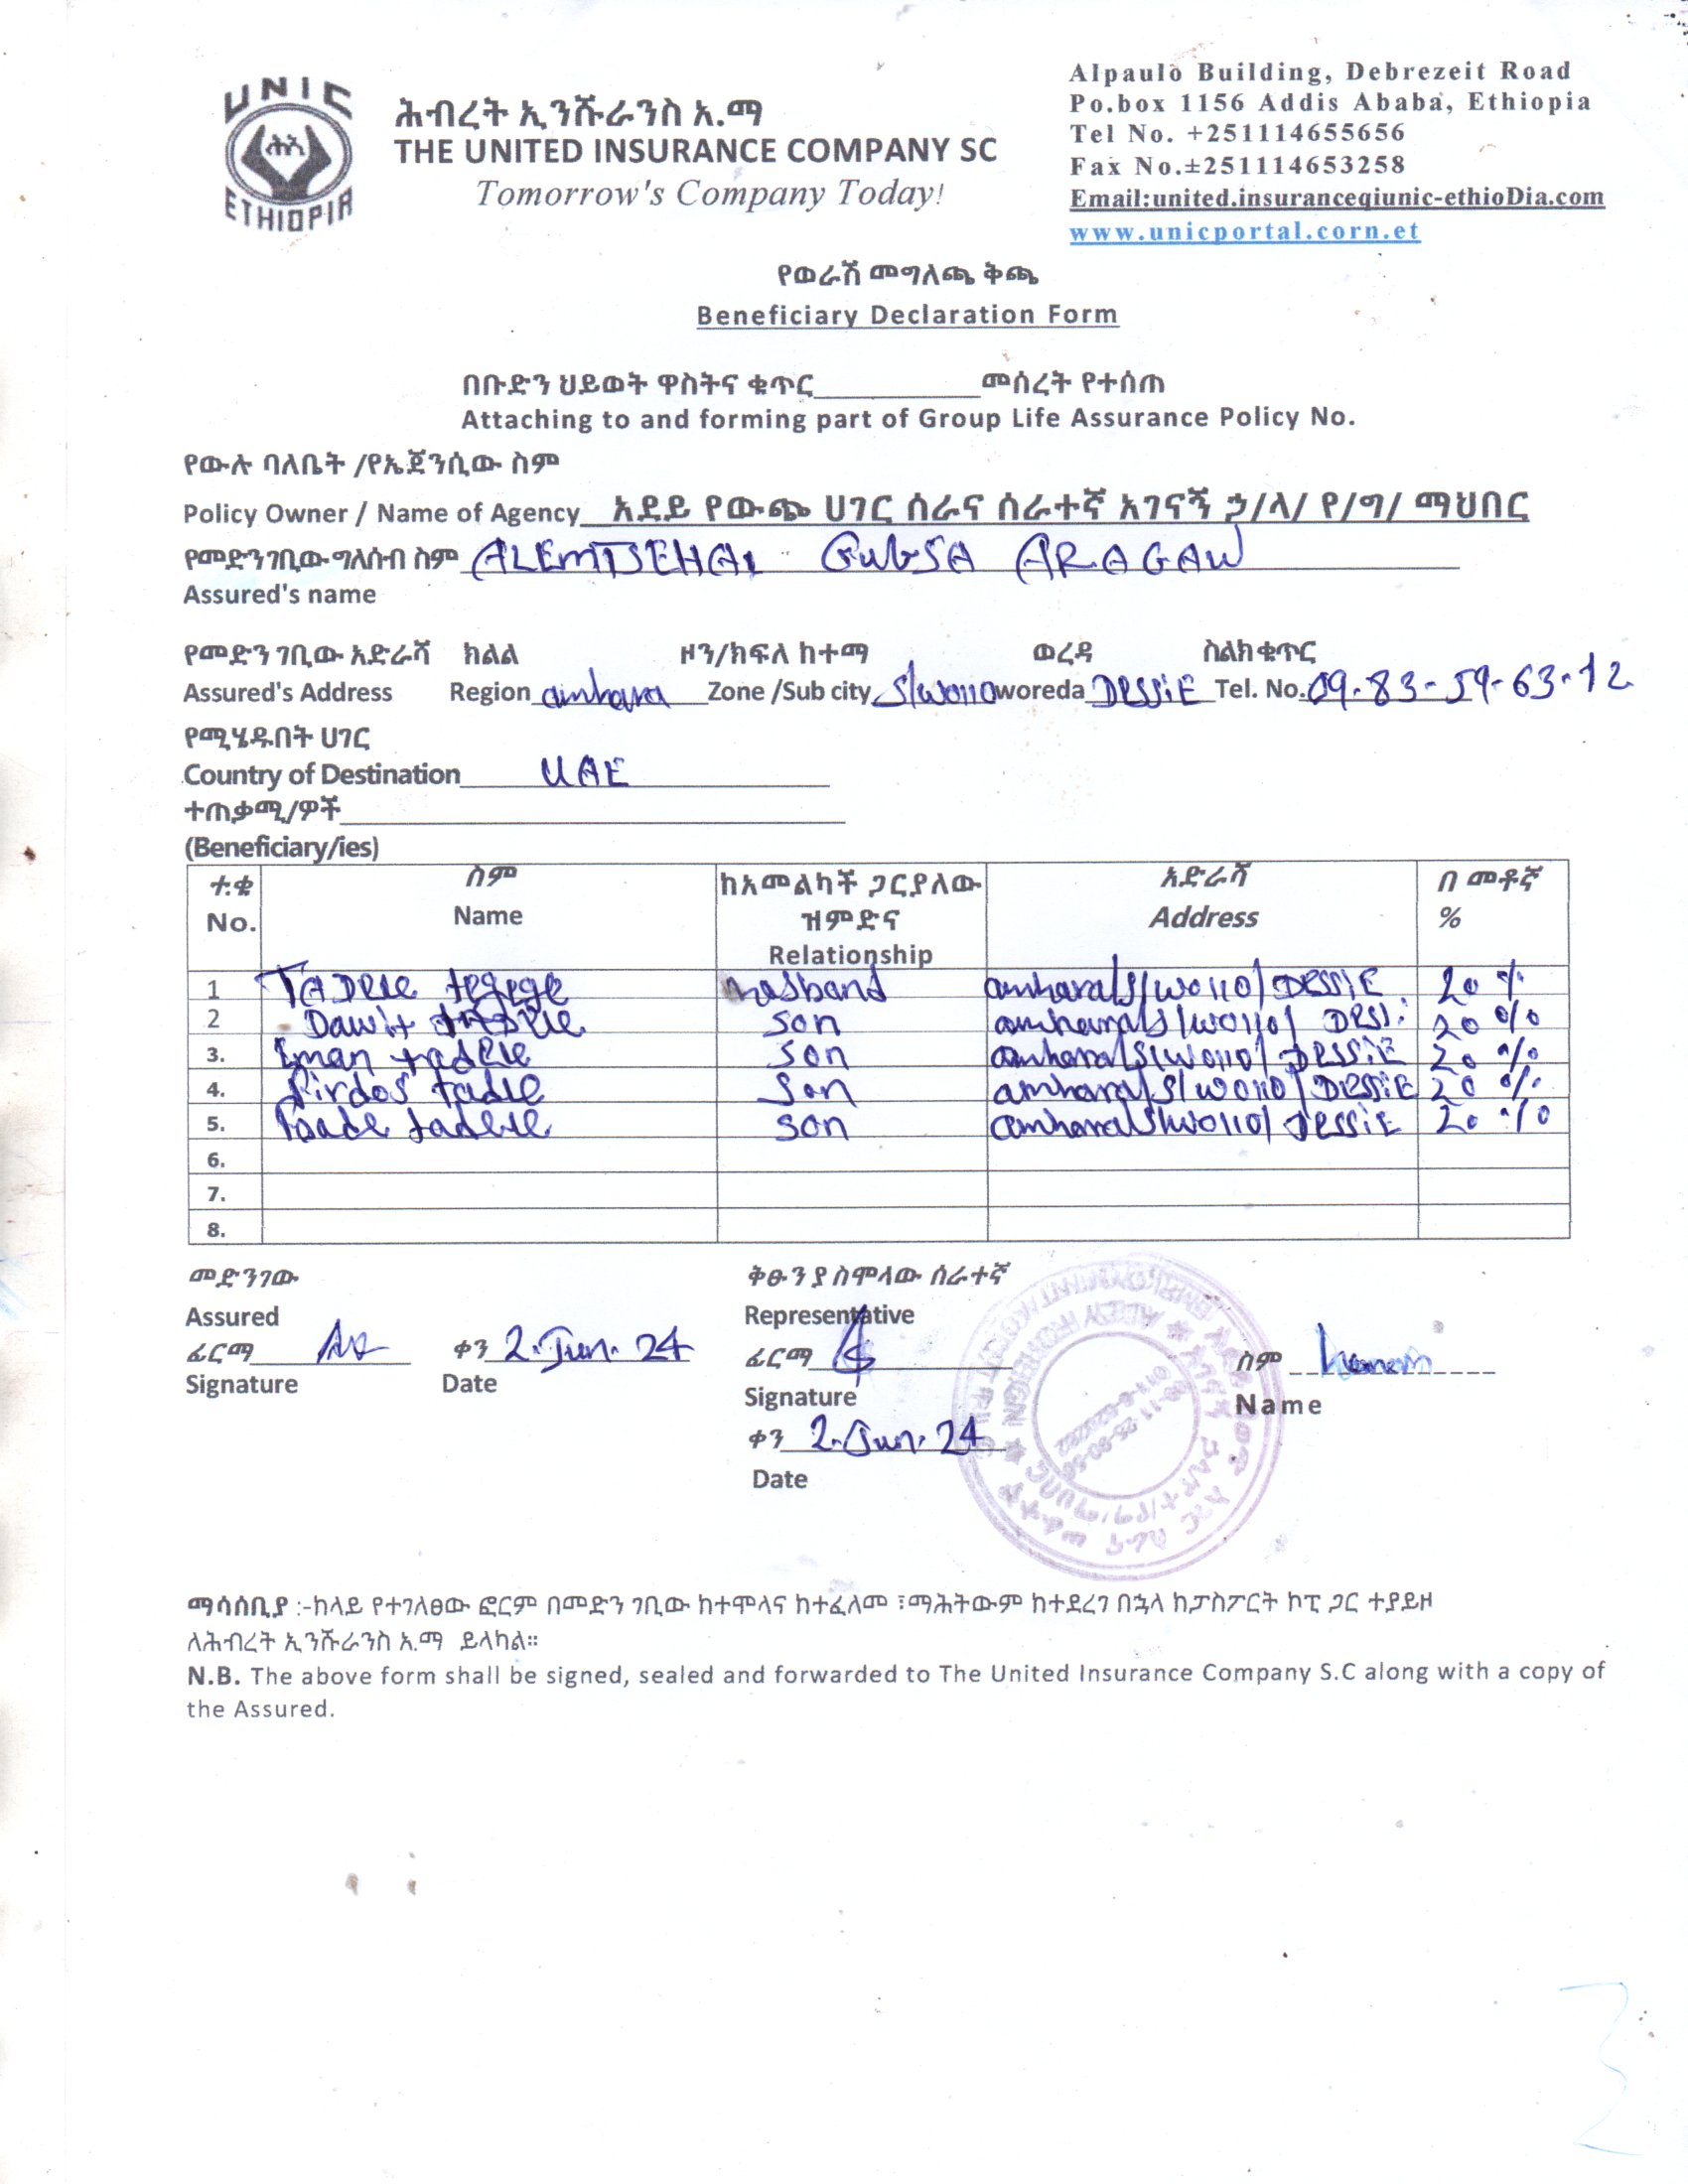 UNIC
ሕብረት ኢንሹራንስ አ.ማ
THE UNITED INSURANCE COMPANY SC
Tomorrow's Company Today!
ETHIOPIA
Alpaulo Building, Debrezeit Road
Po.box 1156 Addis Ababa, Ethiopia
Tel No. +251114655656
Fax No.±251114653258
Email:united.insuranceqiunic-ethioDia.com
www.unicportal.corn.et
የወራሽ መግለጫ ቅጫ
Beneficiary Declaration Form
በቡድን ህይወት ዋስትና ቁጥር__________መሰረት የተሰጠ
Attaching to and forming part of Group Life Assurance Policy No.
የውሉ ባለቤት /የኤጀንሲው ስም
Policy Owner / Name of Agency አደይ የውጭ ሀገር ሰራና ሰራተኛ አገናኝ ኃ/ላ/ የ/ግ/ ማህበር
የመድን ገቢው ግለሰብ ስም ALEMTSEHAI GUGSA ARAGAW
Assured's name
የመድን ገቢው አድራሻ ክልል ዞን/ክፍለ ከተማ ወረዳ ስልክ ቁጥር
Assured's Address Region amhara Zone /Sub city S/wollo woreda DESSIE Tel. No. 09-83-59-63-12
የሚሄዱበት ሀገር
Country of Destination UAE
ተጠቃሚ/ዎች
(Beneficiary/ies)
ተ.ቁ ስም ከአመልካች ጋር ያለው ዝምድና አድራሻ በ መቶኛ
No. Name Relationship Address %
1 TADELE tegege husband amhara/S/wollo/DESSIE 20 %
2 Dawit son amhara/S/wollo/ DESSI 20 %
3. Iman tadele son amhara/S/wollo/ DESSIE 20 %
4. firdos tadle son amhara/S/wollo/DESSIE 20 %
5. tadele son amhara/S/wollo/ DESSIE 20 %
6.
7.
8.
መድን ገው ቅፁን ያስሞላው ሰራተኛ
Assured Representative
ፊርማ ቀን 2-Jun-24 ፊርማ ስም
Signature Date Signature Name
ቀን 2-Jun-24
Date
ማሳሰቢያ :-ከላይ የተገለፀው ፎርም በመድን ገቢው ከተሞላና ከተፈለመ ፣ማሕትውም ከተደረገ በኋላ ከፓስፖርት ኮፒ ጋር ተያይዞ
ለሕብረት ኢንሹራንስ አ.ማ ይላካል።
N.B. The above form shall be signed, sealed and forwarded to The United Insurance Company S.C along with a copy of
the Assured.